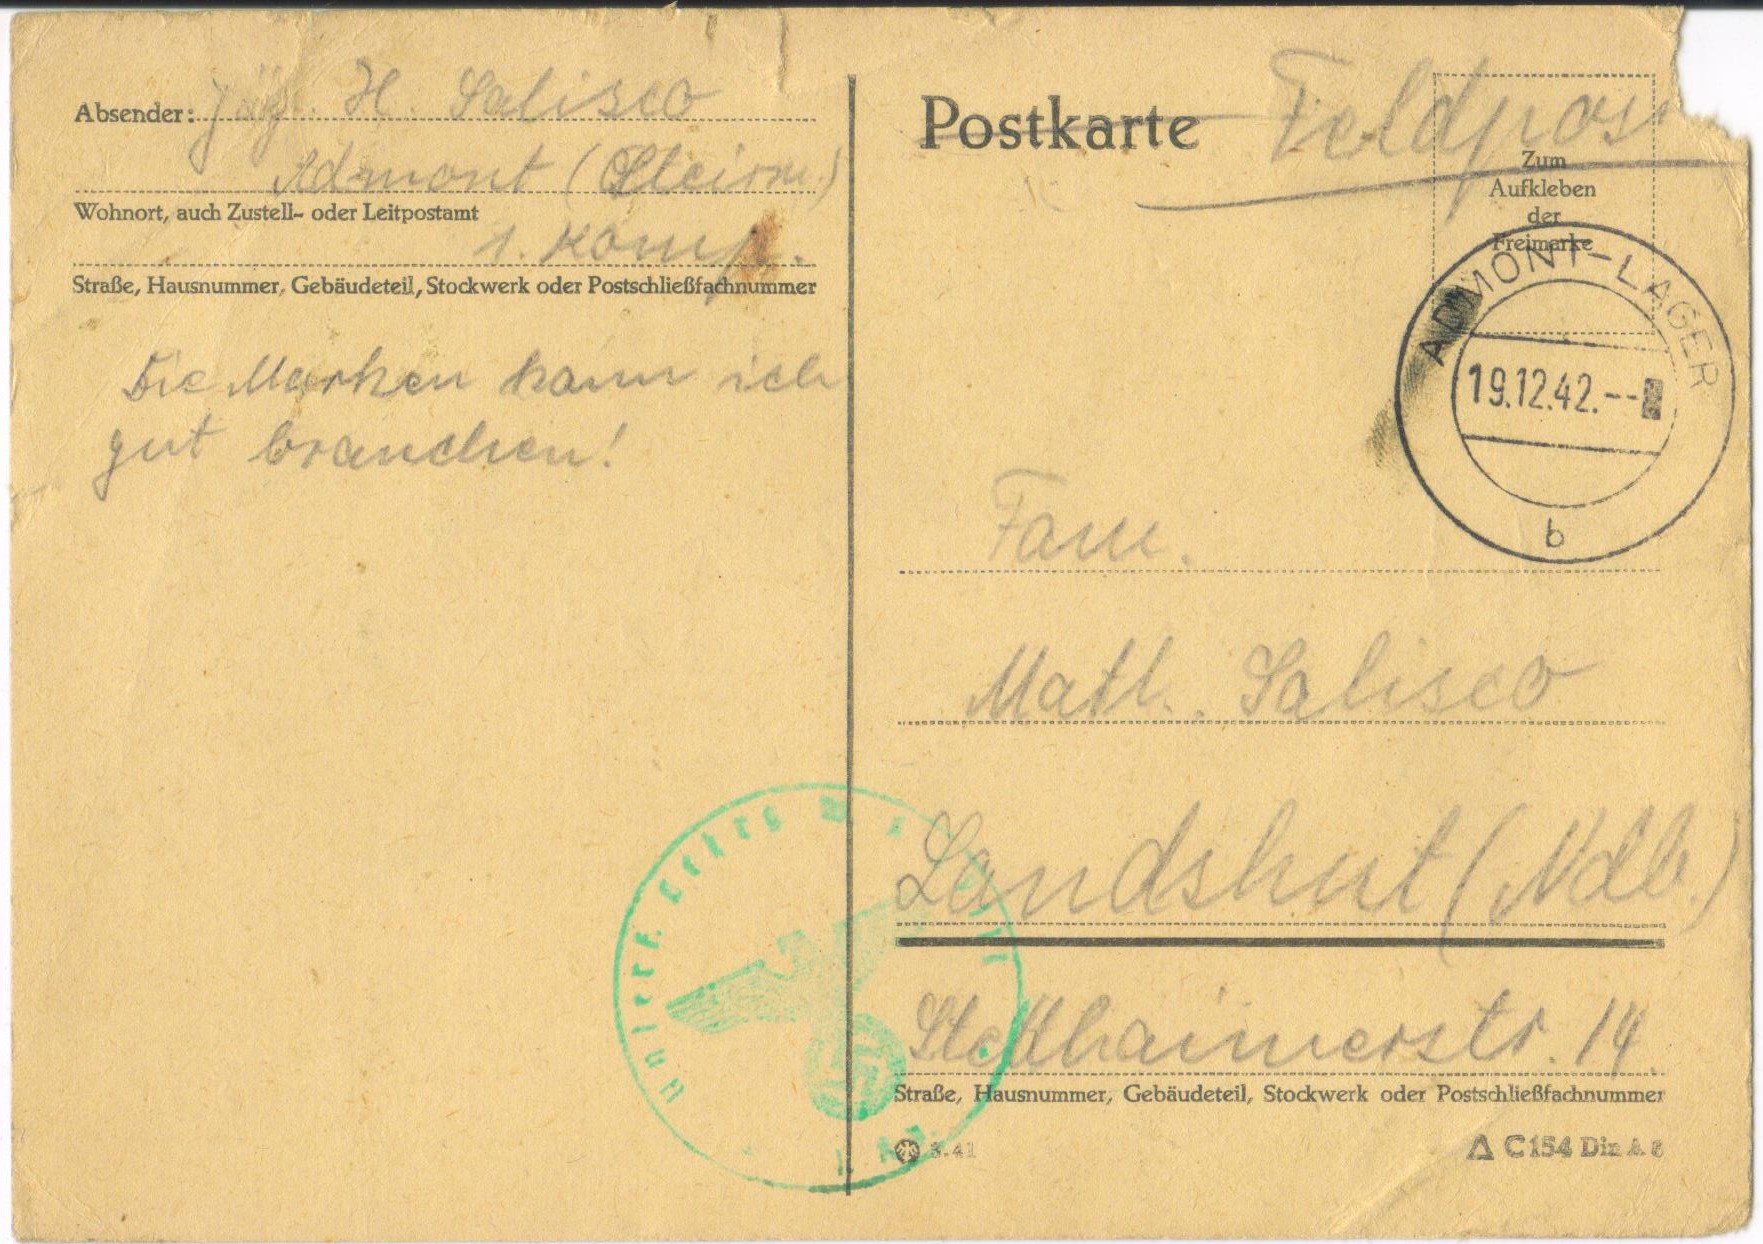 Absender: Jäg. H. Salisco
Admont (Steierm.)
Wohnort, auch Zustell- oder Leitpostamt
1. Komp.
Straße, Hausnummer, Gebäudeteil, Stockwerk oder Postschließfachnummer
Die Marken kann ich
gut brauchen!
Postkarte
Feldpost
Zum
Aufkleben
der
Freimarke
ADMONT-LAGER
19.12.42.--
b
Fam.
Math. Salisco
Landshut (Ndb.)
14
Straße, Hausnummer, Gebäudeteil, Stockwerk oder Postschließfachnummer
3.41
C 154 Din A 6